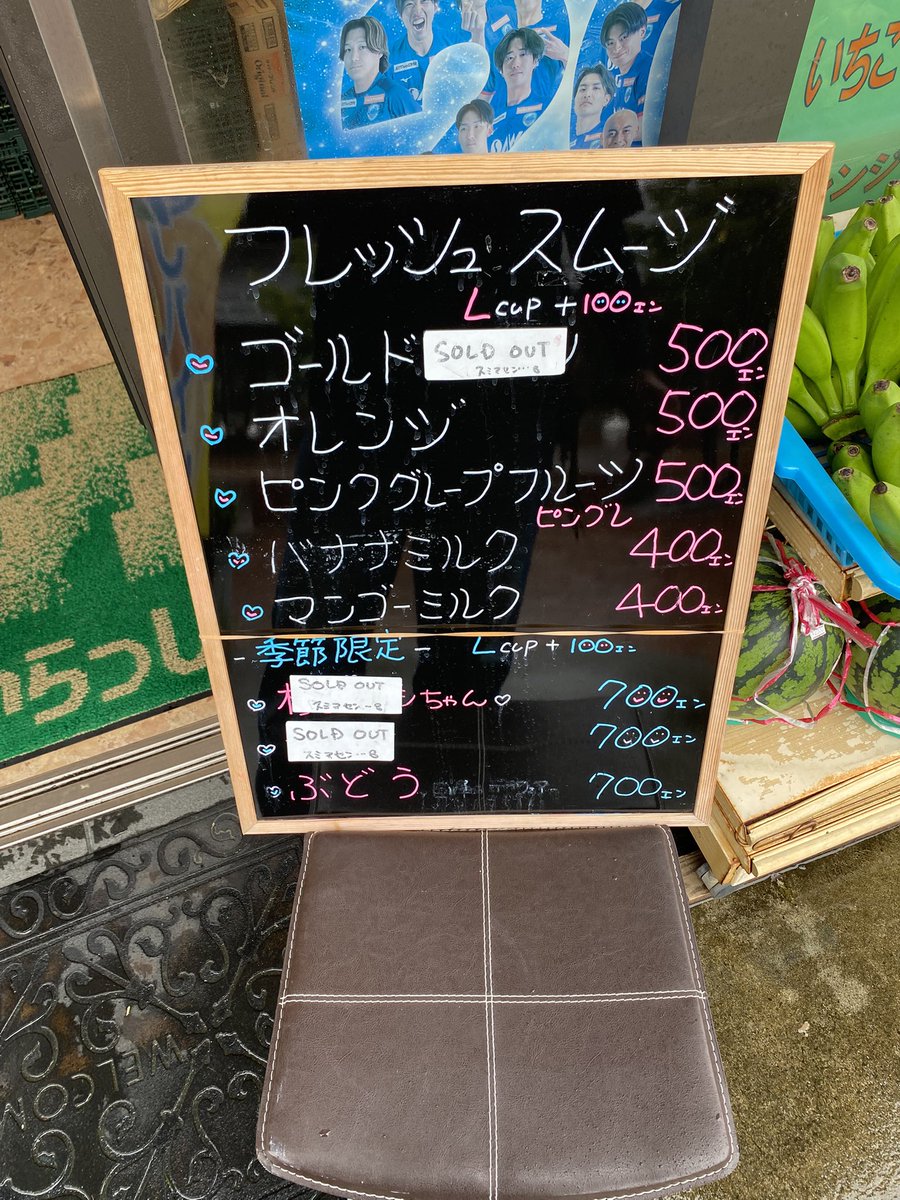 いちご
ンジ
フレッシュ スムージ
L cup + 100エン
ゴールド SOLD OUT 500エン
スミマセン…
オレンジ 500エン
ピンクグレープフルーツ 500エン
ピングレ
バナナミルク 400エン
マンゴーミルク 400エン
- 季節限定 - L cup + 100エン
SOLD OUT ちゃん♡ 700エン
スミマセン…
SOLD OUT 700エン
スミマセン…
ぶどう 700エン
からつし
WELCOME
Original